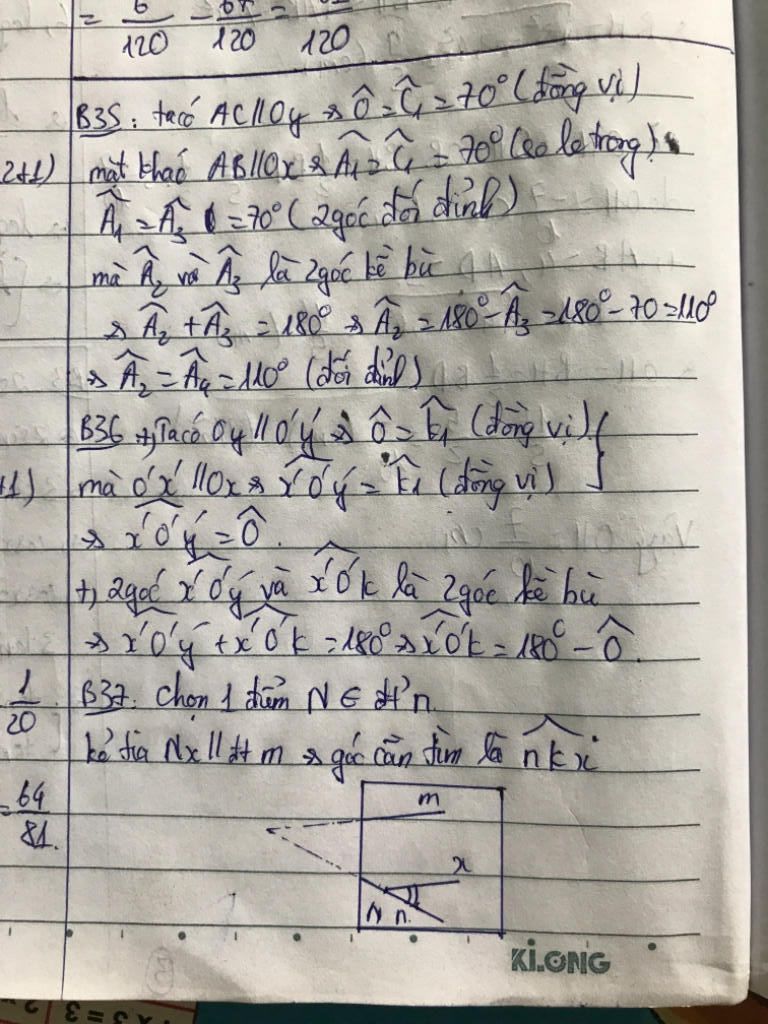 = 6/120 - 64/120 = /120
B35: ta có AC//Oy => Ô = Ĉ₁ = 70° (đồng vị)
2+1)
mặt khác AB//Ox => Â₁ = Ĉ₁ = 70° (so le trong)
Â₁ = Â₃ = 70° (2 góc đối đỉnh)
mà Â₂ và Â₃ là 2 góc kề bù
=> Â₂ + Â₃ = 180° => Â₂ = 180° - Â₃ = 180° - 70 = 110°
=> Â₂ = Â₄ = 110° (đối đỉnh)
B36 +, Ta có Oy // O'y' => Ô = k̂₁ (đồng vị) }
+1)
mà O'x' // Ox => x'O'y' = k̂₁ (đồng vị)
=> x'O'y' = Ô.
+, 2 góc x'O'y' và x'O'k là 2 góc kề bù
=> x'O'y' + x'O'k = 180° => x'O'k = 180° - Ô.
1/20
B37: Chọn 1 điểm N ∈ đt' n.
kẻ tia Nx // đt m => góc cần tìm là nkx
= 64/81.
m
x
N n
KI.ONG